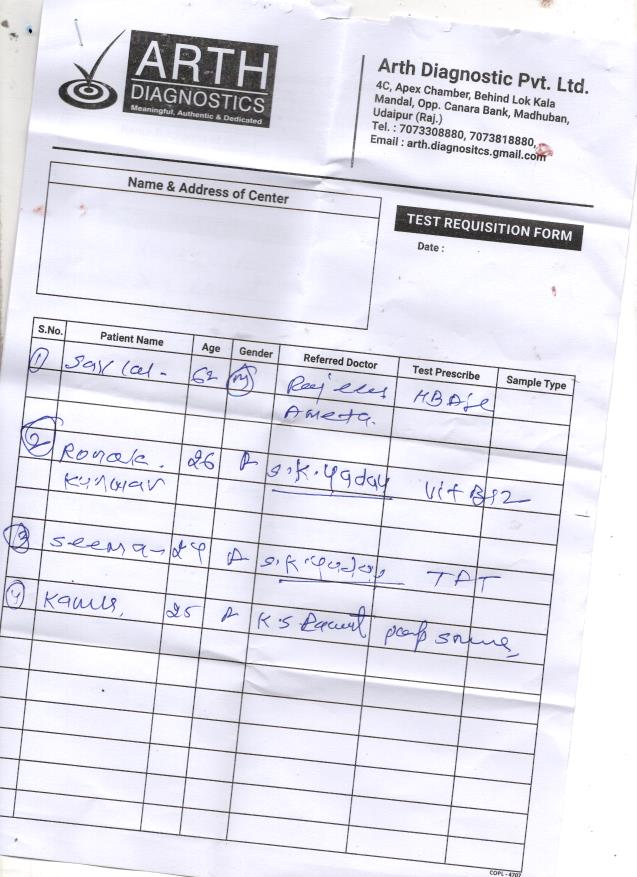 ARTH
DIAGNOSTICS
Meaningful, Authentic & Dedicated
Arth Diagnostic Pvt. Ltd.
4C, Apex Chamber, Behind Lok Kala
Mandal, Opp. Canara Bank, Madhuban,
Udaipur (Raj.)
Tel. : 7073308880, 7073818880,
Email : arth.diagnositcs.gmail.com
Name & Address of Center
TEST REQUISITION FORM
Date :
S.No. Patient Name Age Gender Referred Doctor Test Prescribe Sample Type
1 62 M HBA1c
Ameta.
2 Ronak. 26 S.K. Yadav Vit B12
Kunwar
3 Seema - 24 S.K. Yadav
4 25 K.S
COPL - 4707